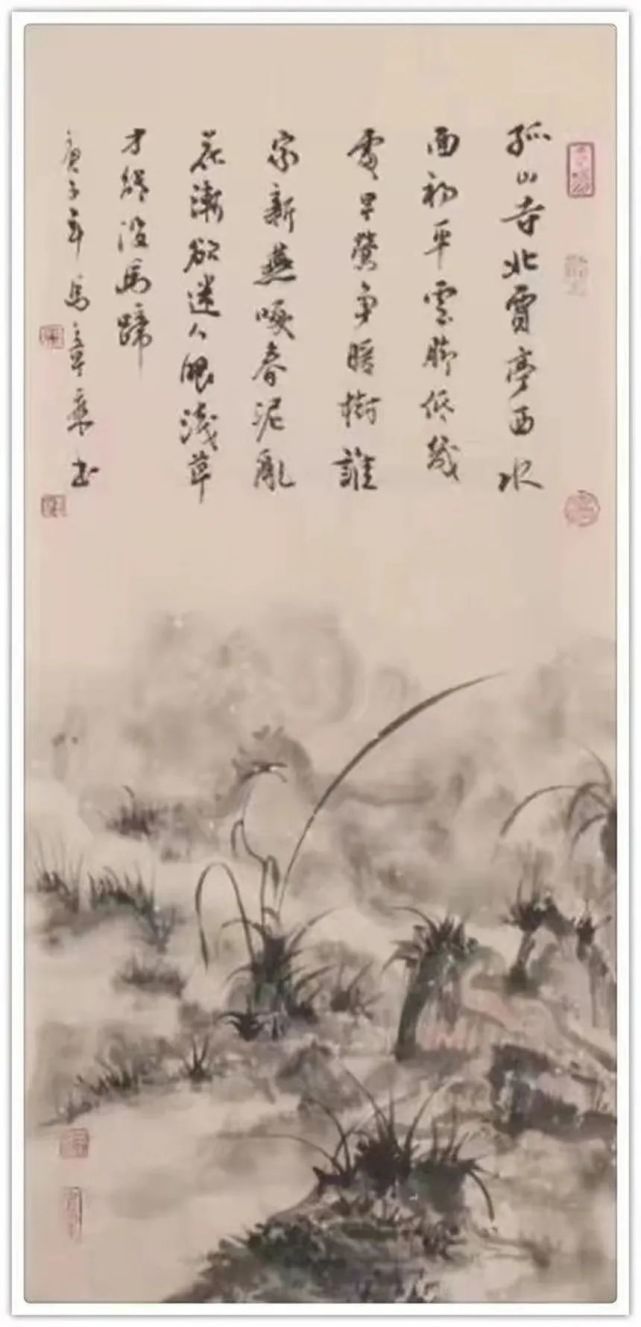 孤山寺北賈亭西水
面初平雲腳低幾
處早鶯爭暖樹誰
家新燕啄春泥亂
花漸欲迷人眼淺草
才能没馬蹄
庚子年馬章乘书